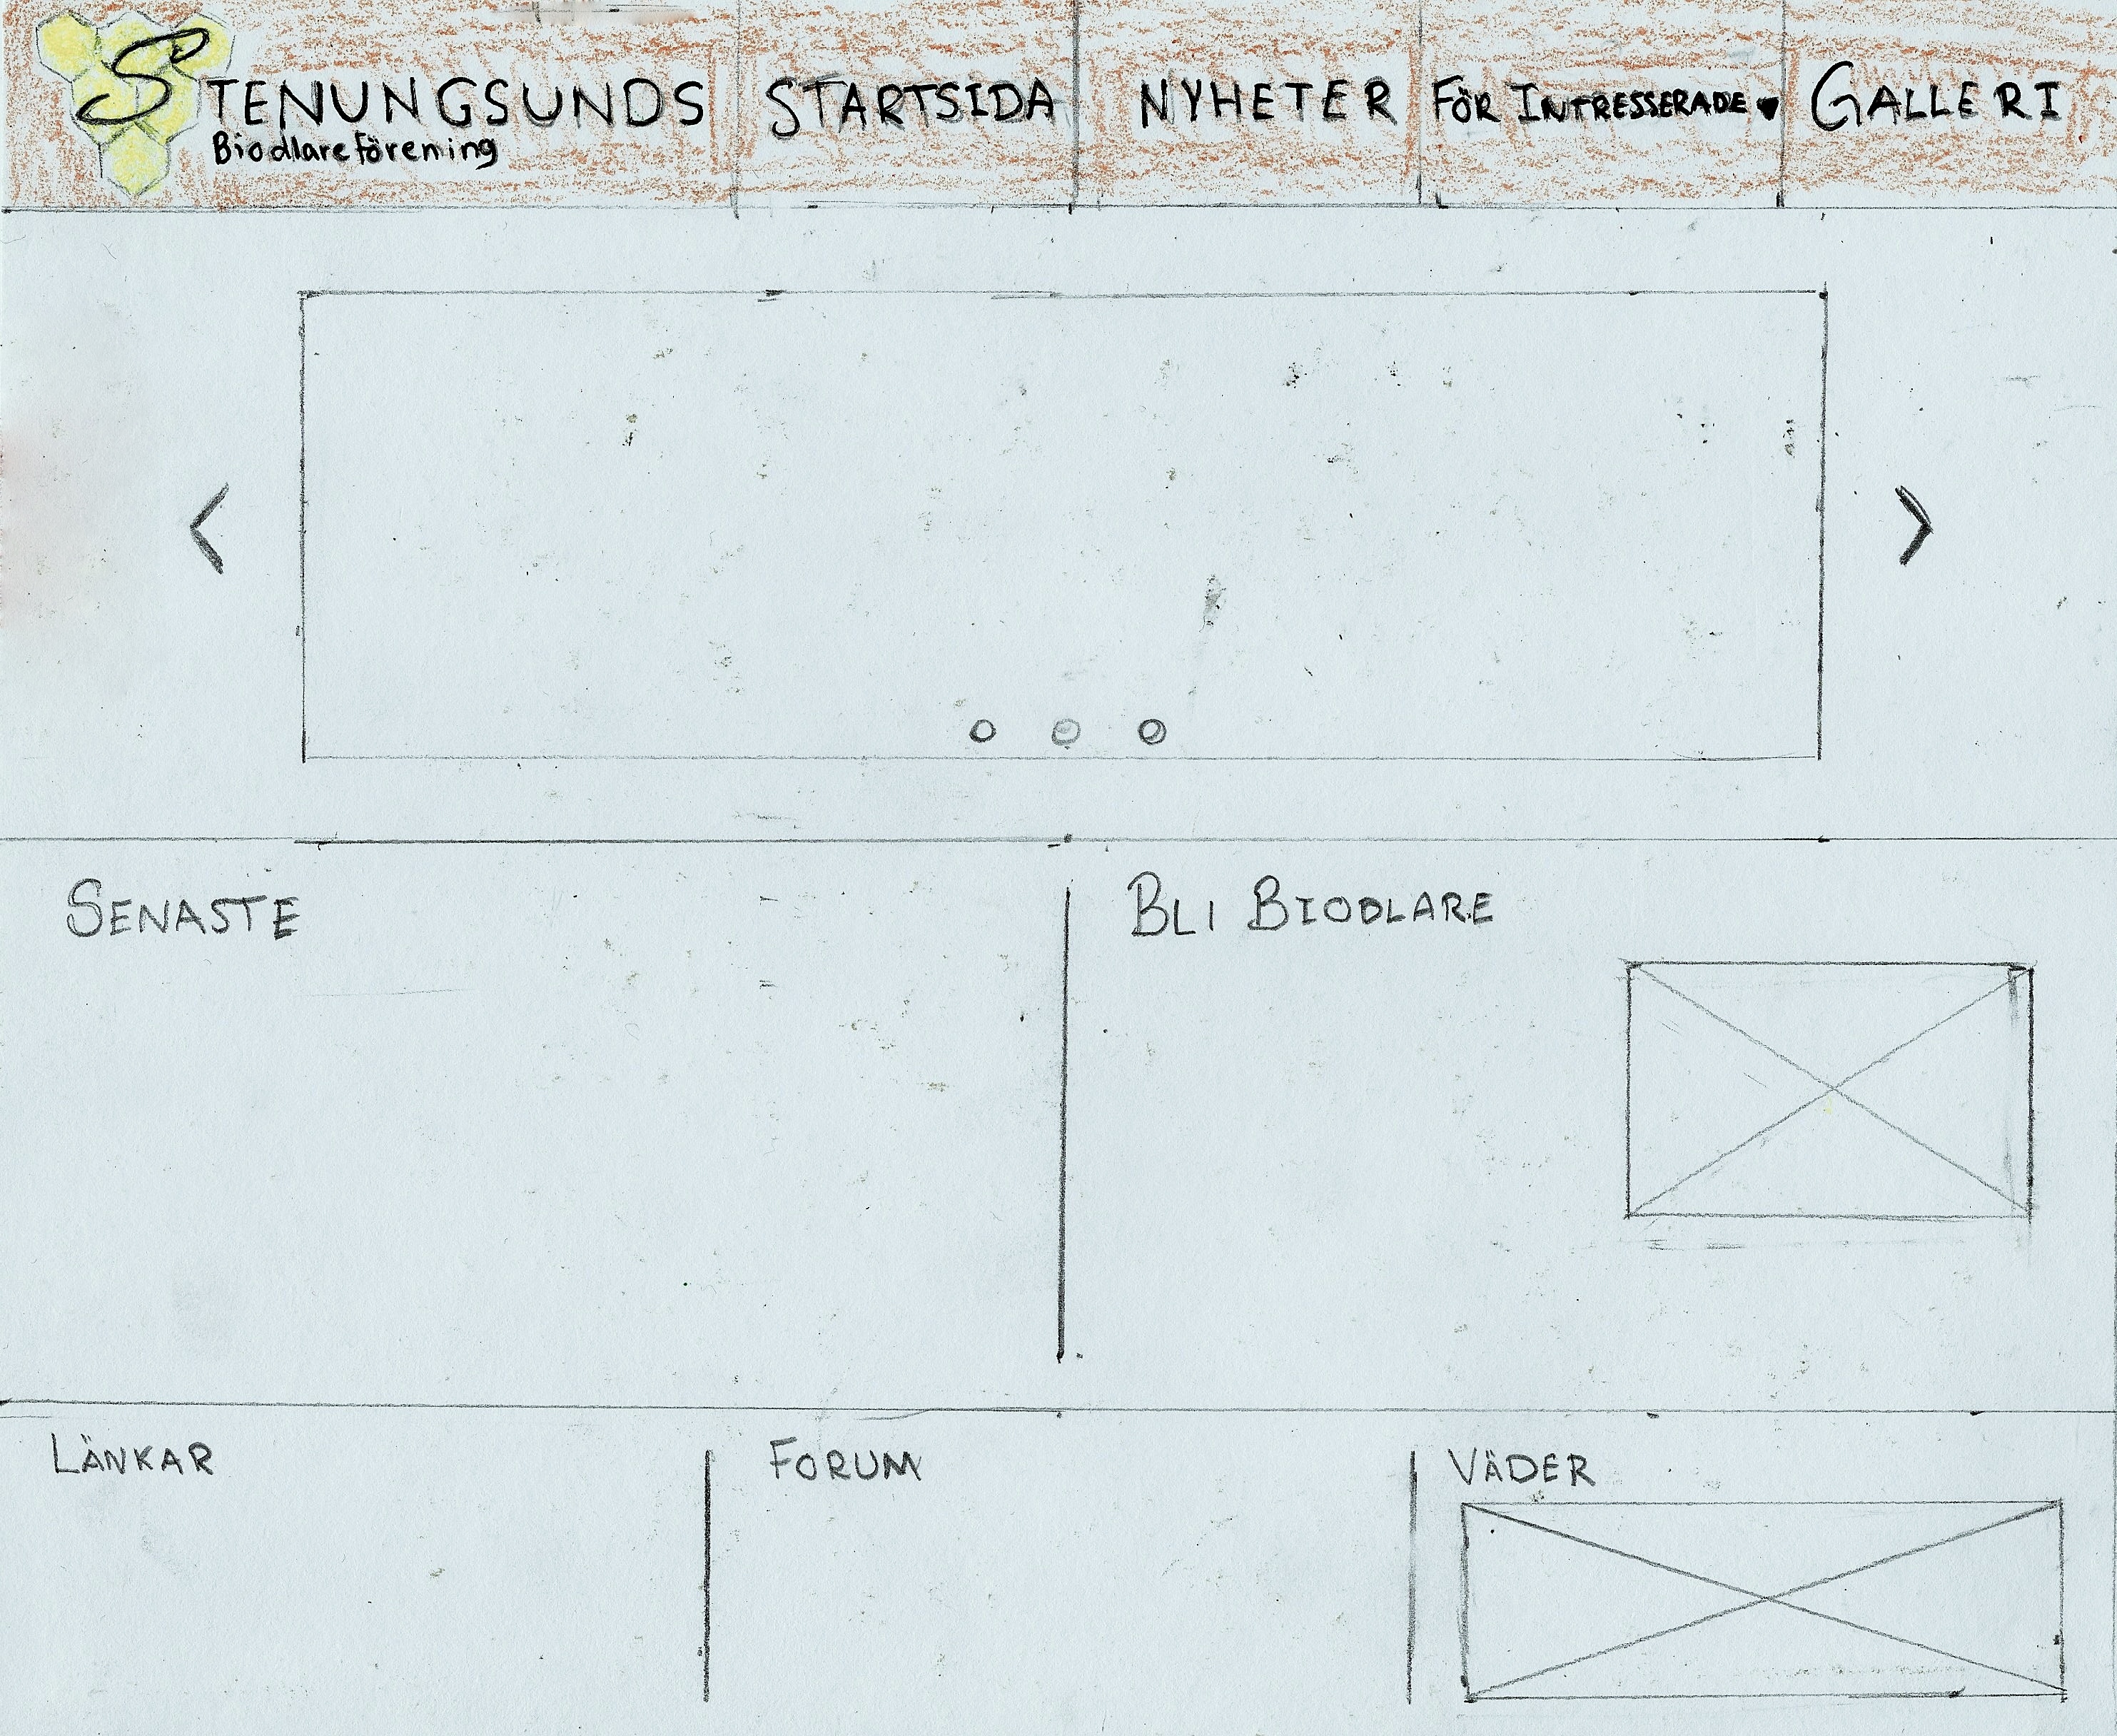 STENUNGSUNDS
Biodlareförening
STARTSIDA
NYHETER
FÖR INTRESSERADE
GALLERI
SENASTE
BLI BIODLARE
LÄNKAR
FORUM
VÄDER